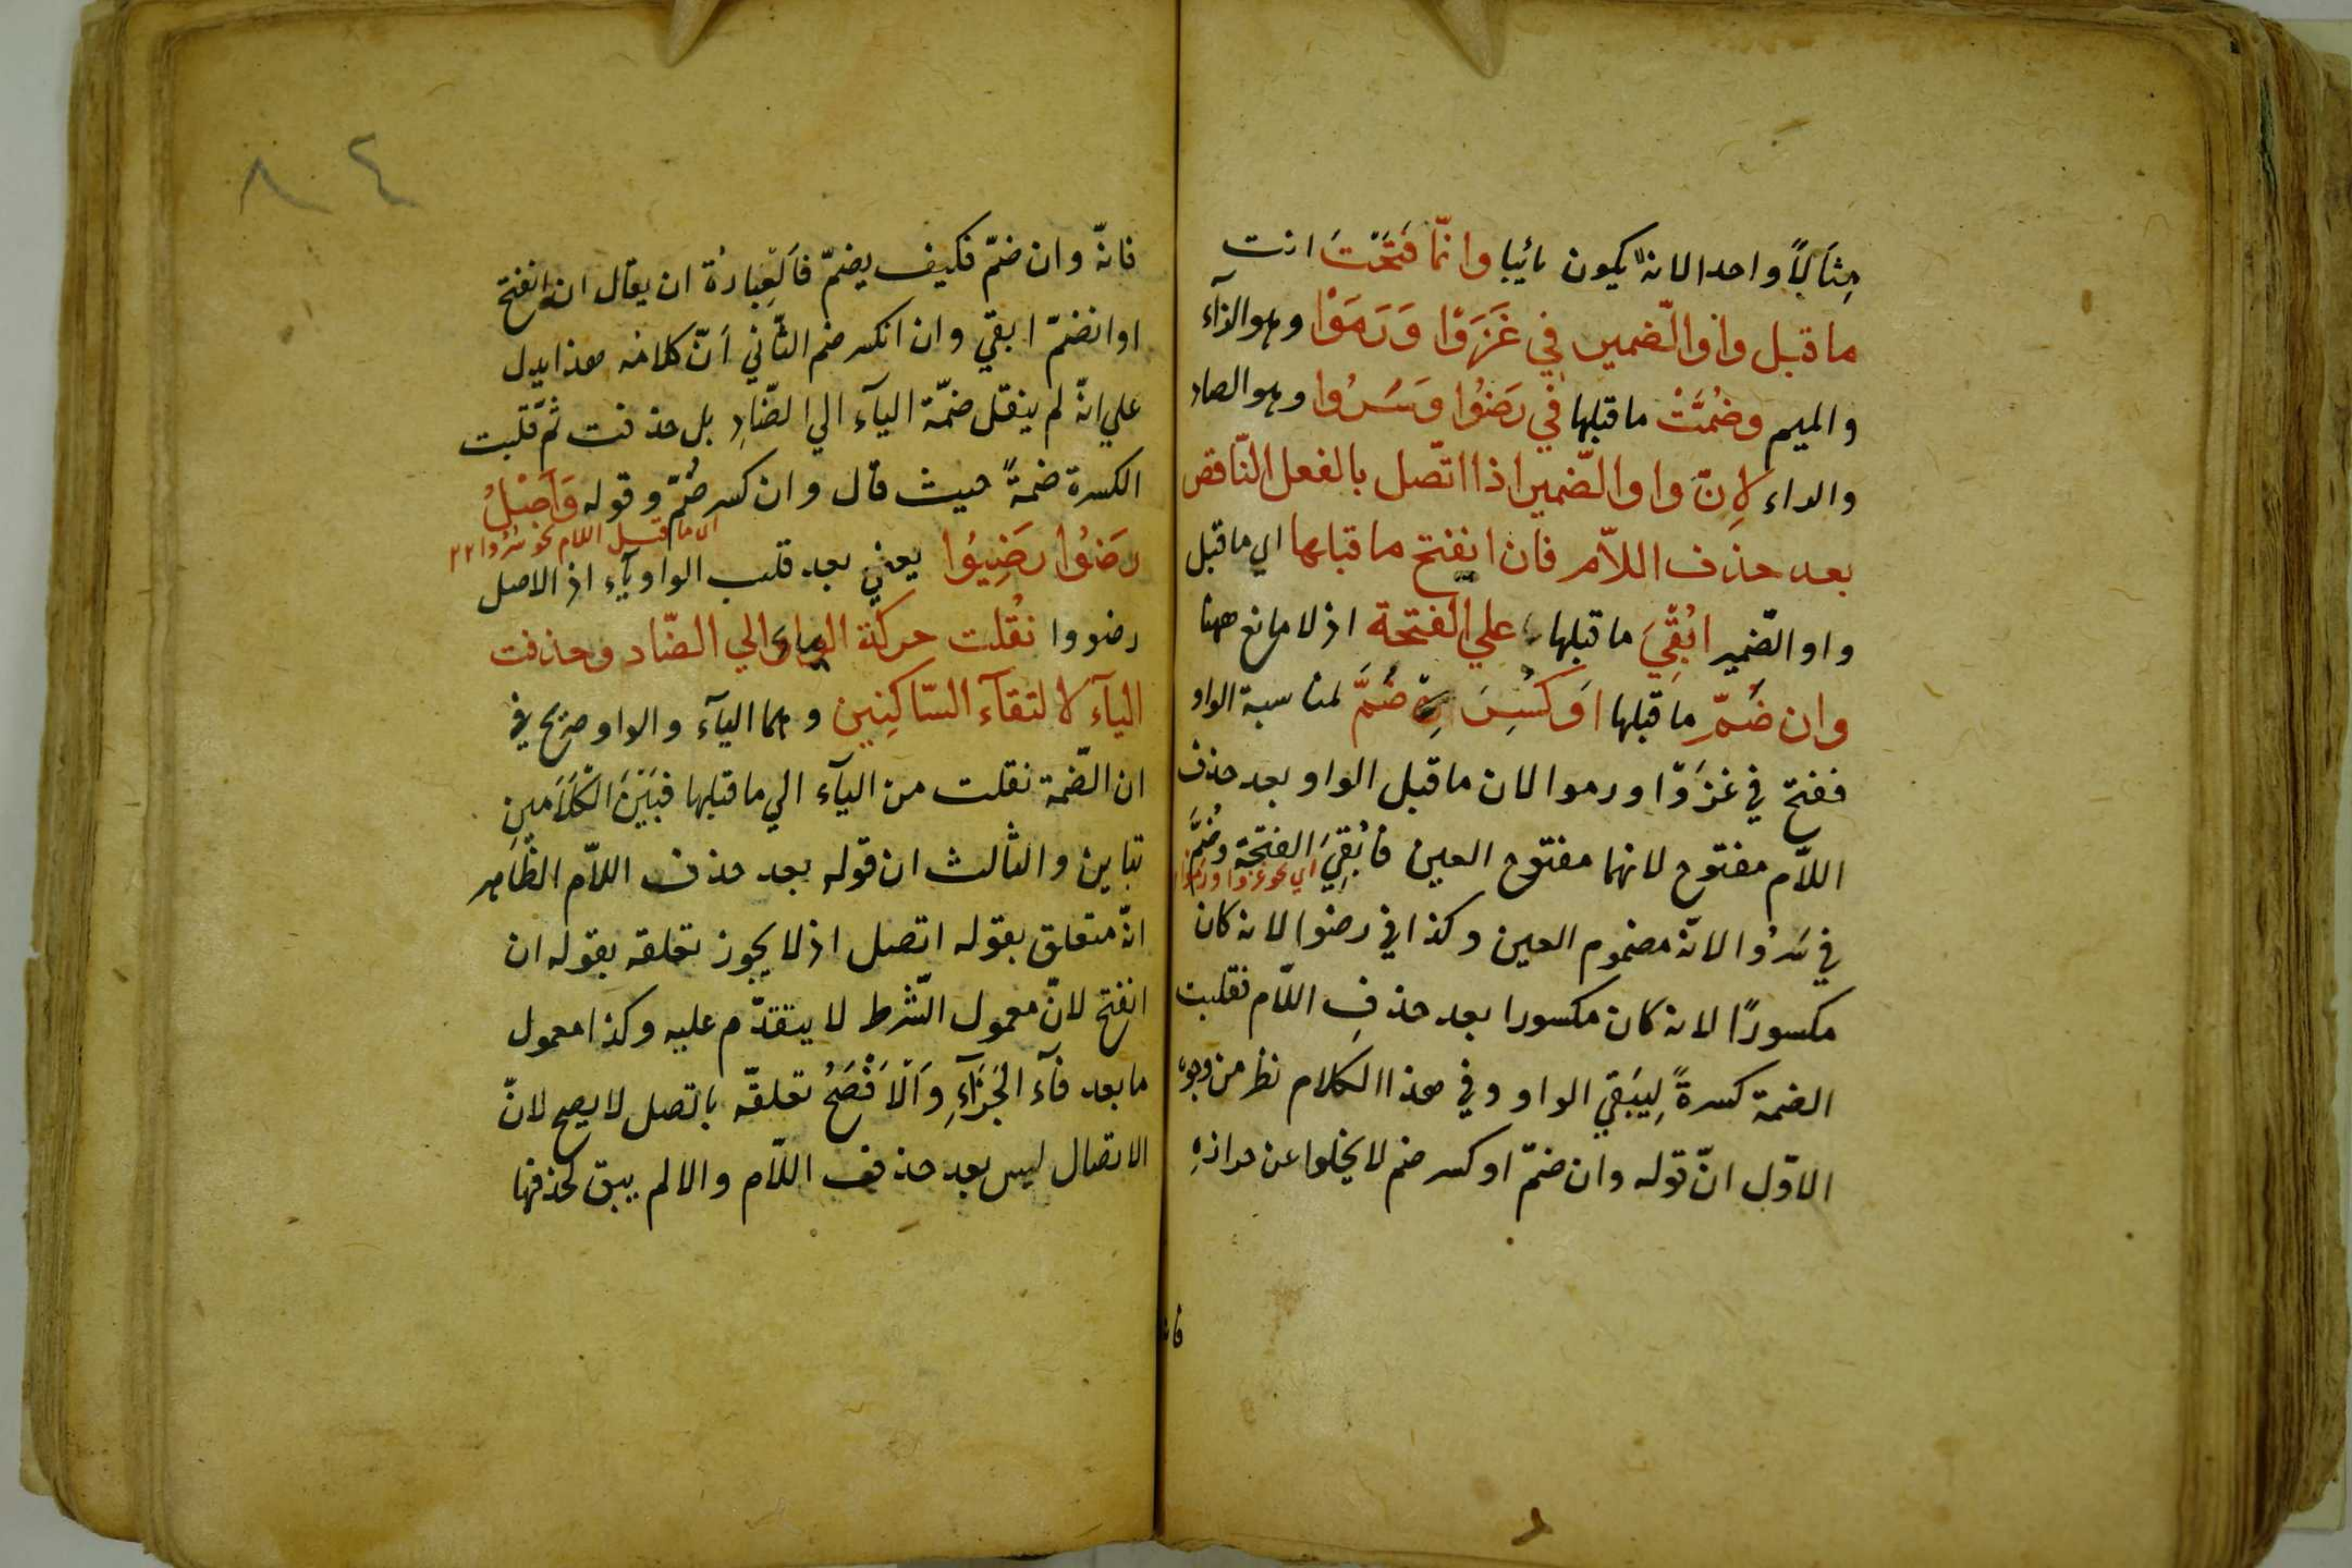 مِثَالًا واحدا لانه يكون يائيا وانّما فَتَحْتَ انت
ما قبل واو الضمير في غَزَوْا وَرَمَوْا وهو الزاء
والميم وضُمَّتْ ما قبلها في رَضُوْا وَسَرُوا وهو الضاد
والراء لِانّ واو الضّمير اذا اتّصل بالفعل النّاقص
بعد حذف اللاّم فان انفتح ما قبلها اي ما قبل
واو الضّمير ابُقِيَ ما قبلها علي الفتحة اذ لا مانع ههنا
وان ضُمّ ما قبلها اَو كُسِرَ ضُمَّ لمناسبة الواو
ففتح في غزَوا ورموا لان ما قبل الواو بعد حذف
اللاّم مفتوح لانهما مفتوح العين فابُقِيَ الفتحة وضُمَّ
اي نحو غزوا ورموا
في سَرُوا لانّه مضموم العين وكذا في رضوا لانه كان
مكسورًا لانه كان مكسورا بعد حذفِ اللاّم نقلبت
الضمة كسرةً لِيَبقَي الواو وفي هذا الكلام نظر من وجوه
الاوّل انّ قوله وان ضمّ او كسر ضم لا يخلوا عن حرازةٍ
فانه
٨٤
فانّه وان ضمّ فكيف يضمّ فاَلعِبارة ان يقال ان انفتح
او انضمّ ابقي وان انكسر ضم الثّاني اَنّ كلامه هذا يدل
علي انّه لم ينقل ضمّة الياء الي الضّادِ بل حذفت ثمّ قلبت
الكسرة ضمةً حيث قال وان كسر ضُمّ وقوله وَاَصْلُ
اي ما قبل اللام نحو سروا ٢٢
رَضُوْا رَضِيُوْا يعني بعد قلب الواو ياء اذ الاصل
رضووا نُقلت حركة الياء الي الضّاد وحذفت
الياء لالتقاء السّاكِنين وهما الياء والواو صريح في
ان الضّمة نقلت من الياء الي ما قبلها فبَيْنَ الكَلَامينِ
تباين والثالث ان قوله بعد حذف اللاّم الظّاهر
انّه متعلق بقوله اتصل اذ لا يجوز تعلقه بقوله ان
انفتح لانّ معمول الشّرط لا يتقدّم عليه وكذا معمول
ما بعد فآء الجَزَآءِ وَاَلْاَفْصَحُ تعلقّه باتصل لا يصح لانّ
الاتصال ليس بعد حذف اللاّم والا لم يبق لحذفها